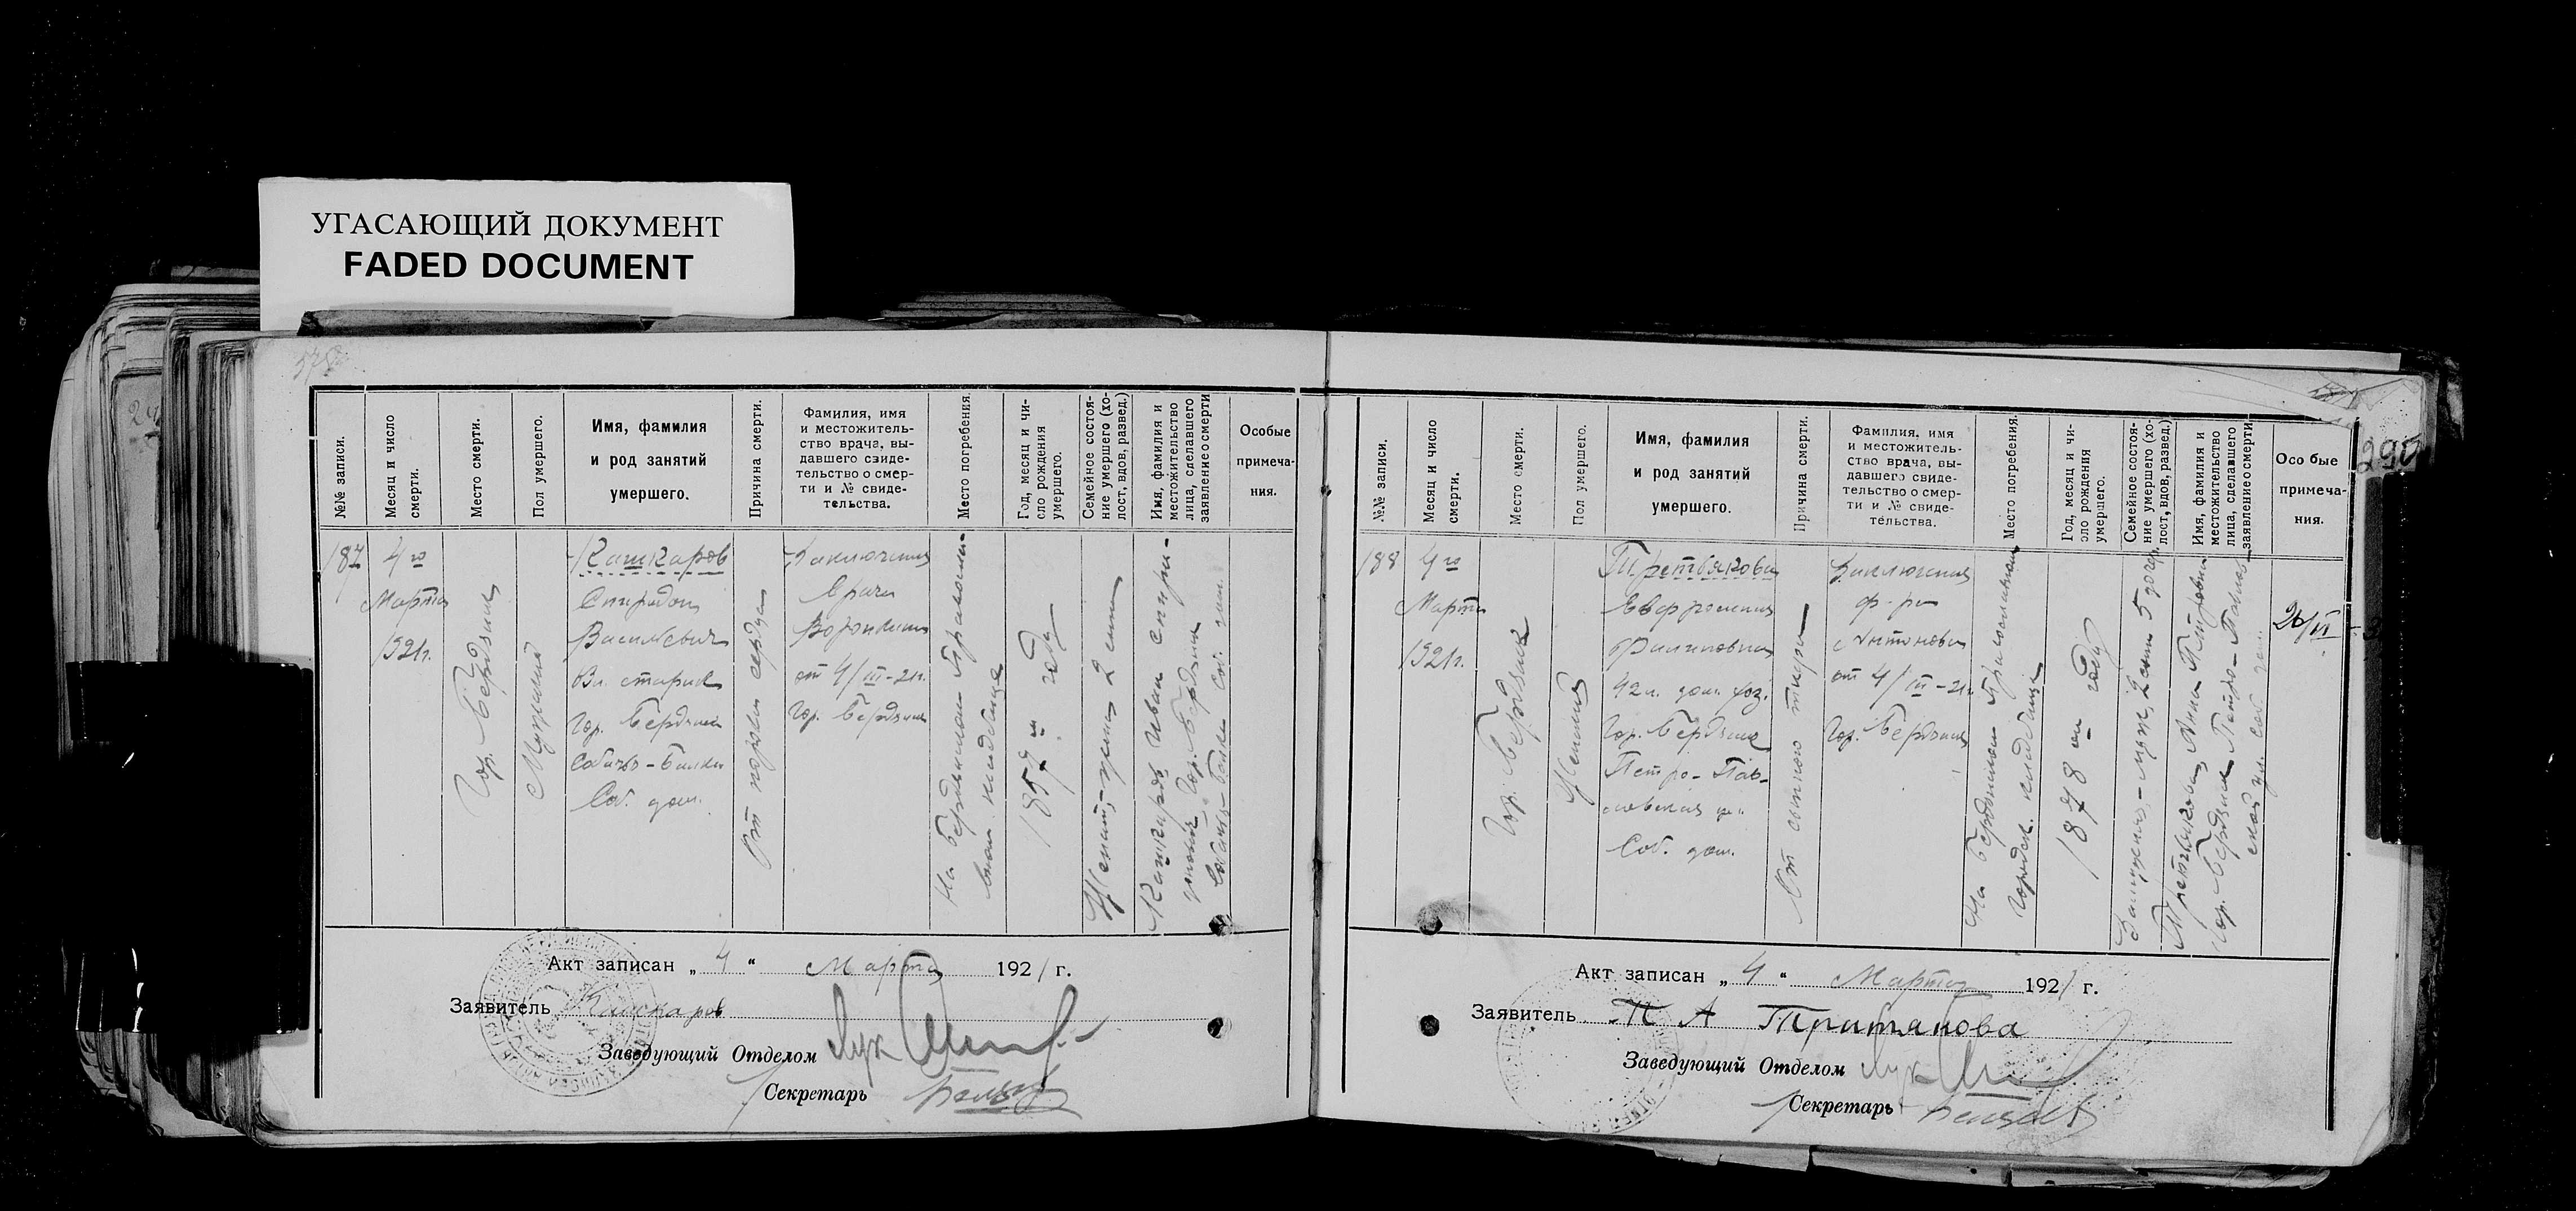 УГАСАЮЩИЙ ДОКУМЕНТ
FADED DOCUMENT
№№ записи.
Месяц и число
смерти.
Место смерти.
Пол умершего.
Имя, фамилия
и род занятий
умершего.
Причина смерти.
Фамилия, имя
и местожитель-
ство врача, вы-
давшего свиде-
тельство о смер-
ти и № свиде-
тельства.
Место погребения.
Год, месяц и чи-
сло рождения
умершего.
Семейное состоя-
ние умершего (хо-
лост, вдов, развед.)
Имя, фамилия и
местожительство
лица, сделавшего
заявление о смерти
Особые
примеча-
ния.
187
4го
Марта
1921г.
Гор. Бердянск
Мужской
Кашкаров
Спиридон
Васильевич
гор. Бердянск
Собачья-Балка
Соб. дом.
От порока сердца
Заключение
врача
от 4/III-21г.
гор. Бердянск
На Бердянском Православ-
ном кладбище
1857 м году
Женат,
Кашкаров Иван Спири-
гор. Бердянск
Соб. дом.
Акт записан „ 4 “ Марта 1921 г.
Заявитель Кашкаров
Заведующий Отделом
Секретарь
№№ записи.
Месяц и число
смерти.
Место смерти.
Пол умершего.
Имя, фамилия
и род занятий
умершего.
Причина смерти.
Фамилия, имя
и местожитель-
ство врача, вы-
давшего свиде-
тельство о смер-
ти и № свиде-
тельства.
Место погребения.
Год, месяц и чи-
сло рождения
умершего.
Семейное состоя-
ние умершего (хо-
лост, вдов, развед.)
Имя, фамилия и
местожительство
лица, сделавшего
заявление о смерти
Осо бые
примеча-
ния.
290
188
4го
Марта
1921г.
Гор. Бердянск
Женский
Третьякова
Евфросиния
Филиповна
42л. дом. хоз.
гор. Бердянск
Петро-Пав-
ловская ул.
Соб. дом.
От сыпного тифа
Заключение
ф-ра
Антонова
от 4/III-21г.
гор. Бердянск
На Бердянском Православном
городск. кладбище
1878 м году
Замужняя, - муж, 2 сына 5 дочер.
Третьякова Анна Петровна
гор. Бердянск Петро-Павлов-
ской ул. соб. дом.
Акт записан „ 4 “ Марта 1921 г.
Заявитель Т А Тритякова
Заведующий Отделом
Секретарь